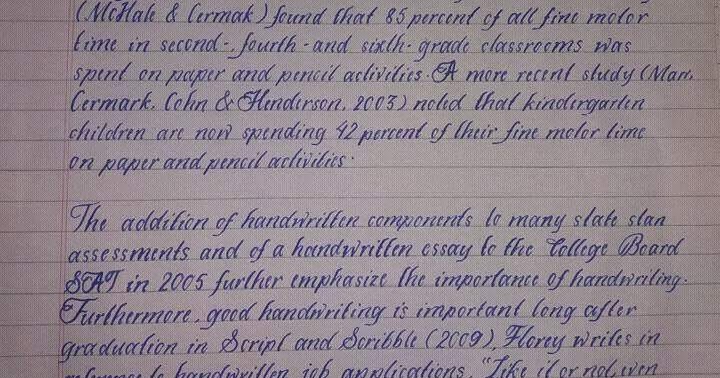 (McHale & Cermak) found that 85 percent of all fine motor
time in second-, fourth- and sixth- grade classrooms was
spent on paper and pencil activities. A more recent study (Marr,
Cermark, Cohn & Henderson, 2003) noted that kindergarten
children are now spending 42 percent of their fine motor time
on paper and pencil activities.
The addition of handwritten components to many state stan
assessments and of a handwritten essay to the College Board
SAT in 2005 further emphasize the importance of handwriting.
Furthermore, good handwriting is important long after
graduation in Script and Scribble (2009), Florey writes in
reference to handwritten job applications, "Like it or not, even